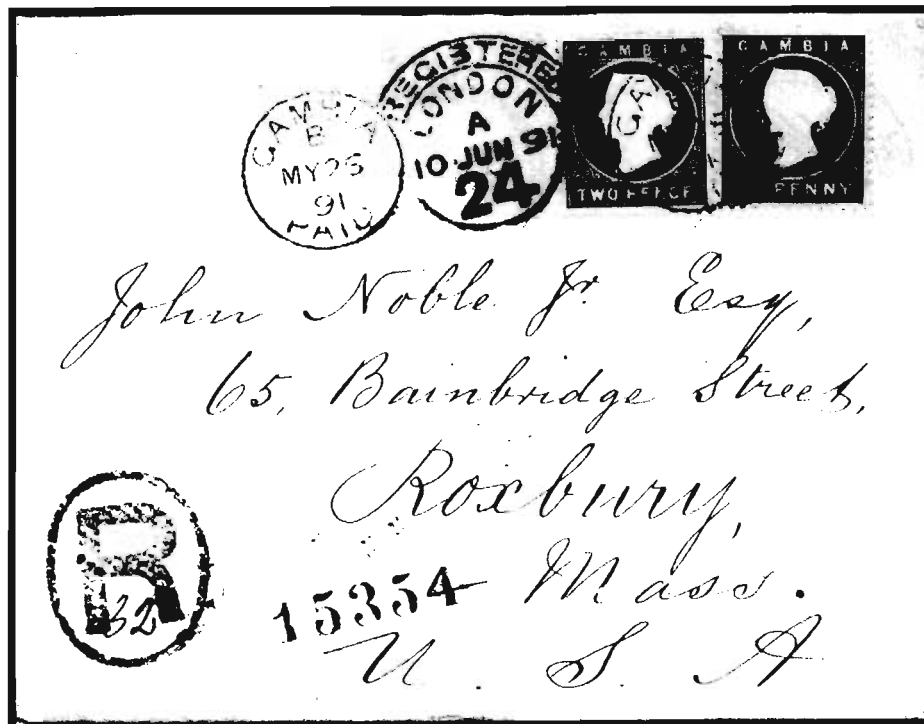 GAMBIA
B
MY 26
91
PAID
REGISTERED
LONDON
A
10 JUN 91
24
GAMBIA
TWO PENCE
GAMBIA
PENNY
John Noble Jr. Esq,
65, Bainbridge Street,
Roxbury,
Mass.
U. S. A
R
32
15354